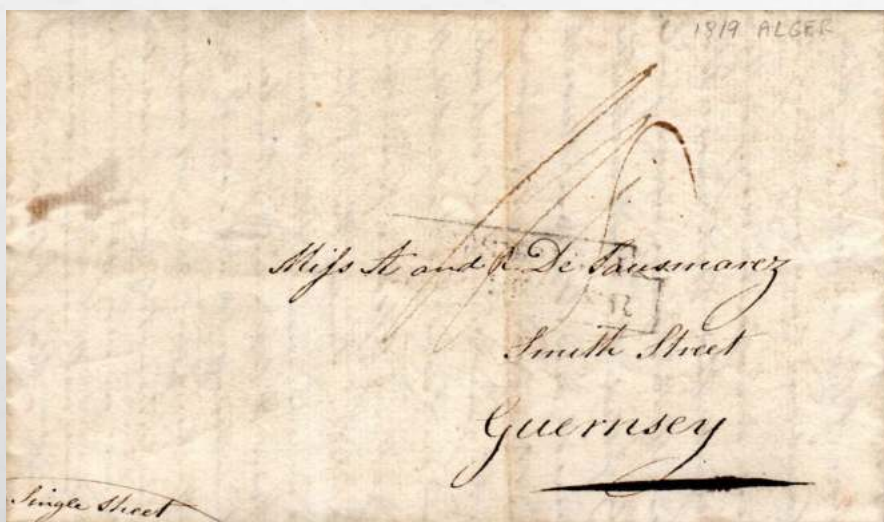 1819 ALGER
Miss A and R De Sausmarez
Smith Street
Guernsey
Single Sheet